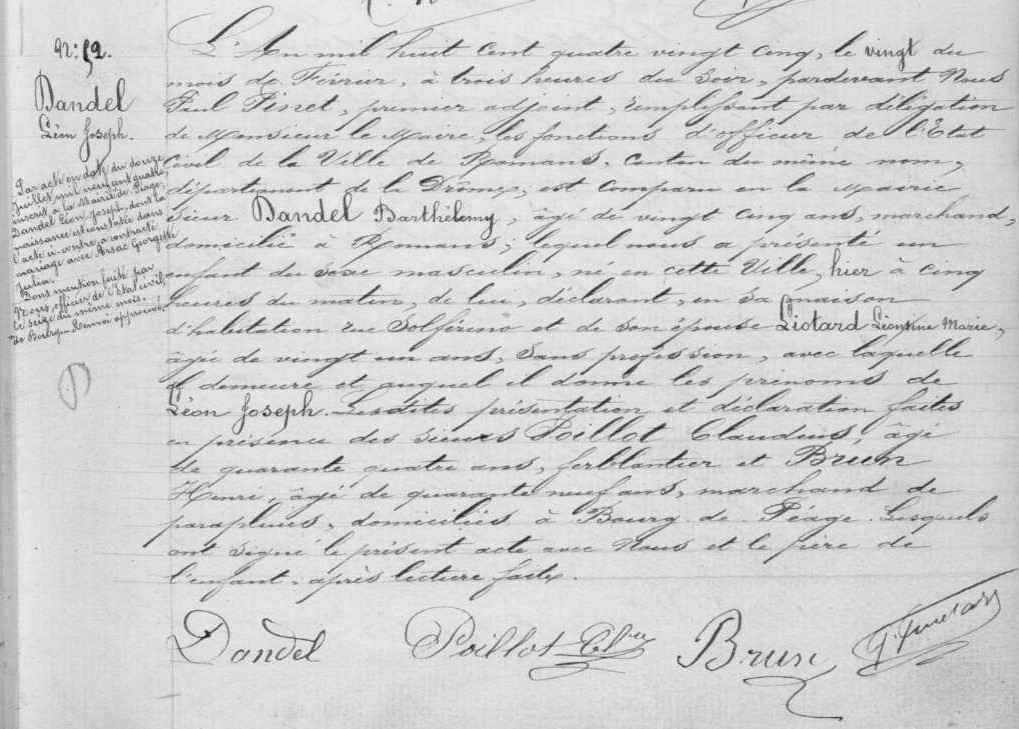 N: 52.
Dandel
Léon Joseph.
Par acte en date du douze
Juillet mil neuf cent quatre,
inscrit à la Mairie de Péage,
Dandel Léon Joseph, dont la
naissance est constatée dans
l'acte ci-contre, a contracté
mariage avec Arsac Georgette
Julia.
Dont mention faite par
Nous, officier de l'Etat civil,
le seize du même mois.
de Bourg
L'An mil huit cent quatre vingt cinq, le vingt du
mois de Février, à trois heures du soir, pardevant Nous
Paul Finet, premier adjoint, remplissant par délégation
de Monsieur le Maire, les fonctions d'officier de l'Etat
Civil de la Ville de Romans, canton du même nom,
département de la Drôme, est comparu en la Mairie
sieur Dandel Barthélemy, âgé de vingt cinq ans, marchand,
domicilié à Romans; lequel nous a présenté un
enfant du sexe masculin, né en cette Ville, hier à cinq
heures du matin, de lui, déclarant, en sa maison
d'habitation rue Solférino et de son épouse Liotard Marie,
âgée de vingt un ans, sans profession, avec laquelle
il demeure et auquel il donne les prénoms de
Léon Joseph. Lesdites présentation et déclaration faites
en présence des sieurs Poillot Claudius, âgé
de quarante quatre ans, ferblantier et Brun
Henri, âgé de quarante neuf ans, marchand de
parapluies, domiciliés à Bourg de Péage. Lesquels
ont signé le présent acte avec Nous et le père de
l'enfant, après lecture faite.
Dandel Poillot Brun